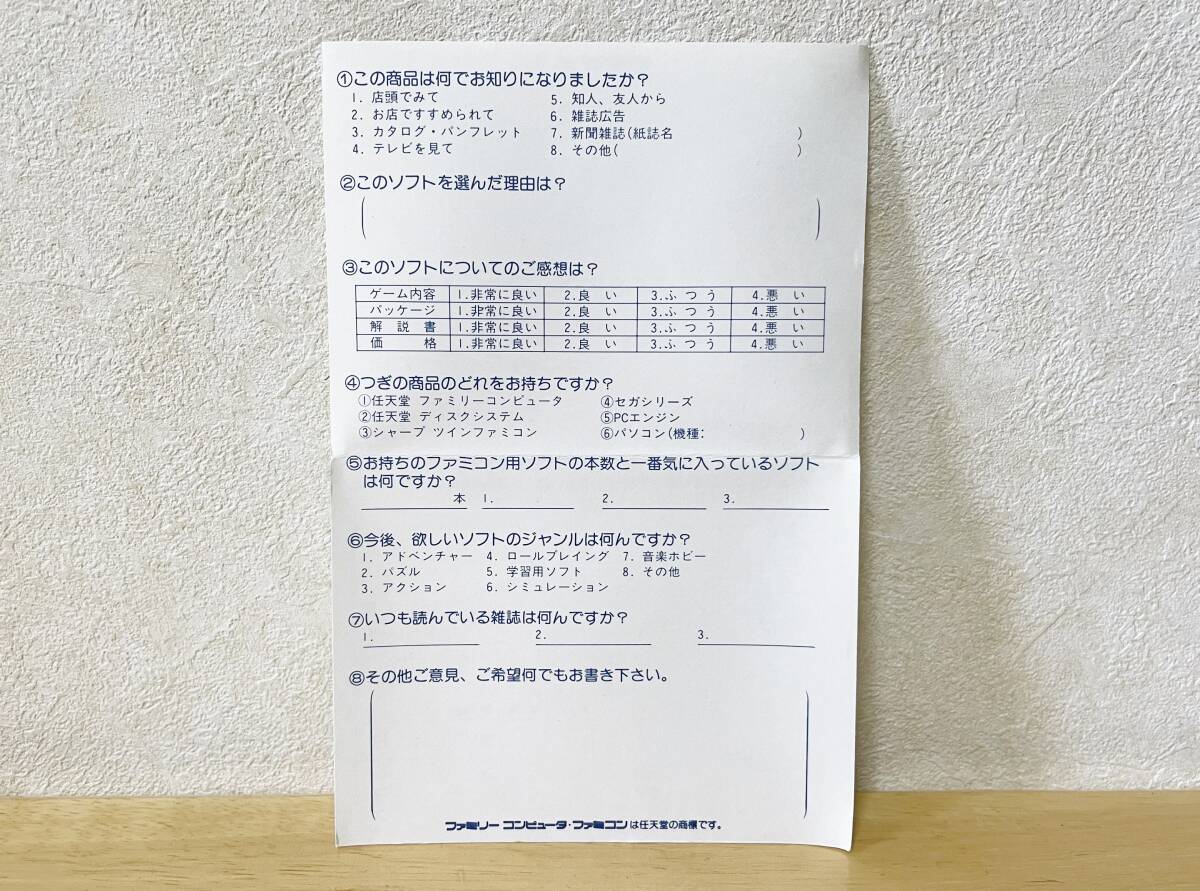 ①この商品は何でお知りになりましたか？
1. 店頭でみて 5. 知人、友人から
2. お店ですすめられて 6. 雑誌広告
3. カタログ・パンフレット 7. 新聞雑誌(紙誌名 )
4. テレビを見て 8. その他( )
②このソフトを選んだ理由は？
③このソフトについてのご感想は？
ゲーム内容 1.非常に良い 2.良 い 3.ふ つ う 4.悪 い
パッケージ 1.非常に良い 2.良 い 3.ふ つ う 4.悪 い
解 説 書 1.非常に良い 2.良 い 3.ふ つ う 4.悪 い
価 格 1.非常に良い 2.良 い 3.ふ つ う 4.悪 い
④つぎの商品のどれをお持ちですか？
①任天堂 ファミリーコンピュータ ④セガシリーズ
②任天堂 ディスクシステム ⑤PCエンジン
③シャープ ツインファミコン ⑥パソコン(機種: )
⑤お持ちのファミコン用ソフトの本数と一番気に入っているソフト
は何ですか？
本 1. 2. 3.
⑥今後、欲しいソフトのジャンルは何んですか？
1. アドベンチャー 4. ロールプレイング 7. 音楽ホビー
2. パズル 5. 学習用ソフト 8. その他
3. アクション 6. シミュレーション
⑦いつも読んでいる雑誌は何んですか？
1. 2. 3.
⑧その他ご意見、ご希望何でもお書き下さい。
ファミリー コンピュータ・ファミコンは任天堂の商標です。